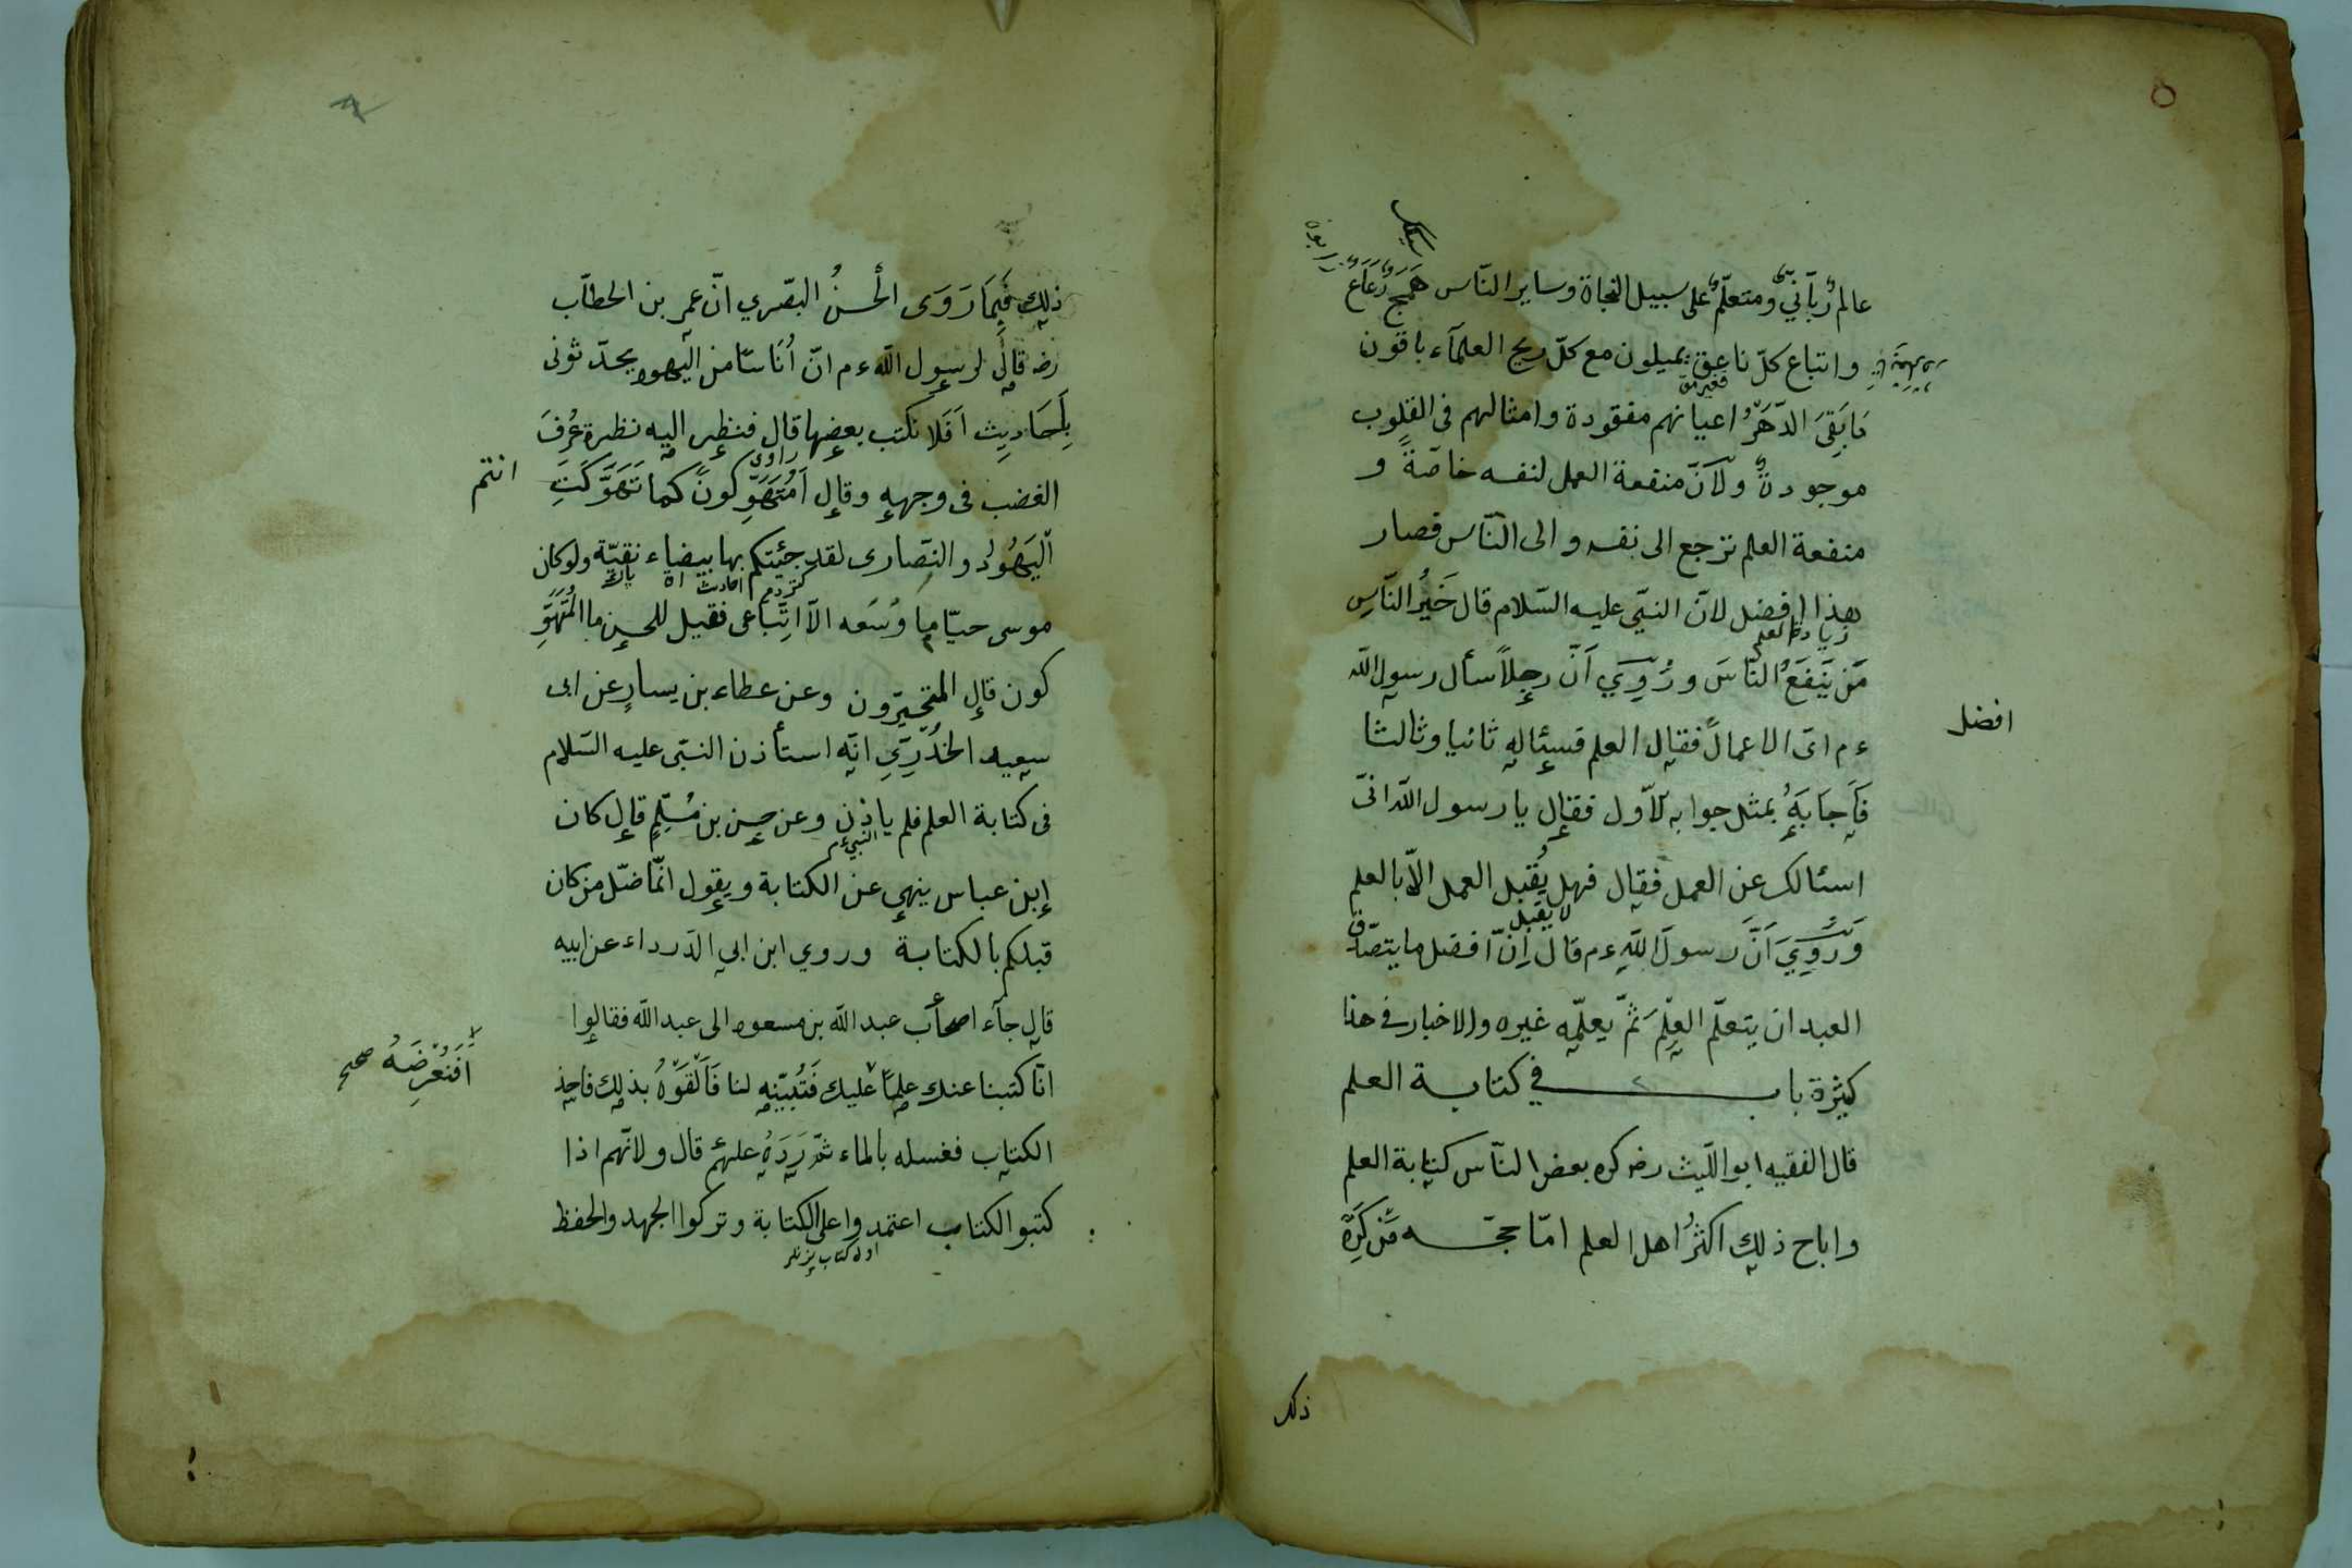 عالم ربّانيّ ومتعلّم على سبيل النجاة وساير النّاس همج رُعاع
واتباع كلّ ناعق يميلون مع كلّ ريح العلمآء باقون
مَا بَقِيَ الدّهرُ اعيانهم مفقودة وامثالهم فى القلوب
موجودةٌ ولانّ منفعة العمل لنفسه خاصّةً و
منفعة العلم ترجع الى نفسه والى النّاس فصار
هذا افضل لانّ النبيّ عليه السّلام قال خَيرُ النّاسِ
زيادة العلم
مَن يَنفَعُ النّاسَ ورُوِيَ اَنّ رجلاً سأل رسول الله
ءم اىّ الاعمال فقال العلم فسئاله ثانيا وثالثا
افضل
فَاَجَابَهُ بمثل جوابه الاّول فقال يا رسول الله انّى
اسئالك عن العمل فقال فهل يُقبل العمل الاّ بالعلم
لا يقبل
وَرُوِيَ اَنَّ رسولَ اللهِ ءم قال اِنّ افضل ما يتصدّق
العبد ان يتعلّم العِلمَ ثمّ يعلّمه غيره والاخبار فى هذا
كثيرة باب فى كتابة العلم
قال الفقيه ابو اللّيث رضه كره بعض النّاس كتابة العلم
واباح ذلك اكثرُ اهل العلم امّا حجّه مَن كَرِهَ
ذلك
ذلك فِيمَا رَوَى الْحسنُ البصّري انّ عمر بن الخطّاب
رضه قال لرسول الله ءم انّ اُنَاسًا من اليهود يحدّثونى
بِاَحَادِيث اَفَلا نكتب بعضها قال فنظر اليه نظرة عُرِفَ
راوى
الغضب فى وجهه وقال اَمُتَهَوِّكُونَ كما تَهَوَّكَتِ
انتم
اليَهُودُ والنّصارى لقد جئتكم بها بيضاء نقيّة ولو كان
موسى حيّا ما وُسَعه الاّ اتِّبَاعى فقيل للحسن ما المُتَهَوِّ
كون قال المتحيّرون وعن عطاء بن يسار عن ابى
سعيد الخُدْرِيِّ انّه استأذن النبّى عليه السّلام
فى كتابة العلم فلم ياذن وعن حسن بن مُسْلِمٍ قال كان
النبي ءم
إبن عباس ينهى عن الكتابة ويقول انّما ضلّ من كان
قبلكم بالكتابة وروي ابن ابي الدّرداء عن ابيه
قال جآء اصحاب عبد الله بن مسعود الى عبد الله فقالوا
انّا كتبنا عنك عِلمًا عليك فَتُبيّنه لنا فَاَلْقَوْهُ بذلك فاخذ
اَفَنَعْرِضَهُ صح
الكتاب فغسله بالماء ثمّ رَدَهُ عليهم قال ولانّهم اذا
كتبو الكتاب اعتمدوا على الكتابة وتركوا الجهد والحفظ